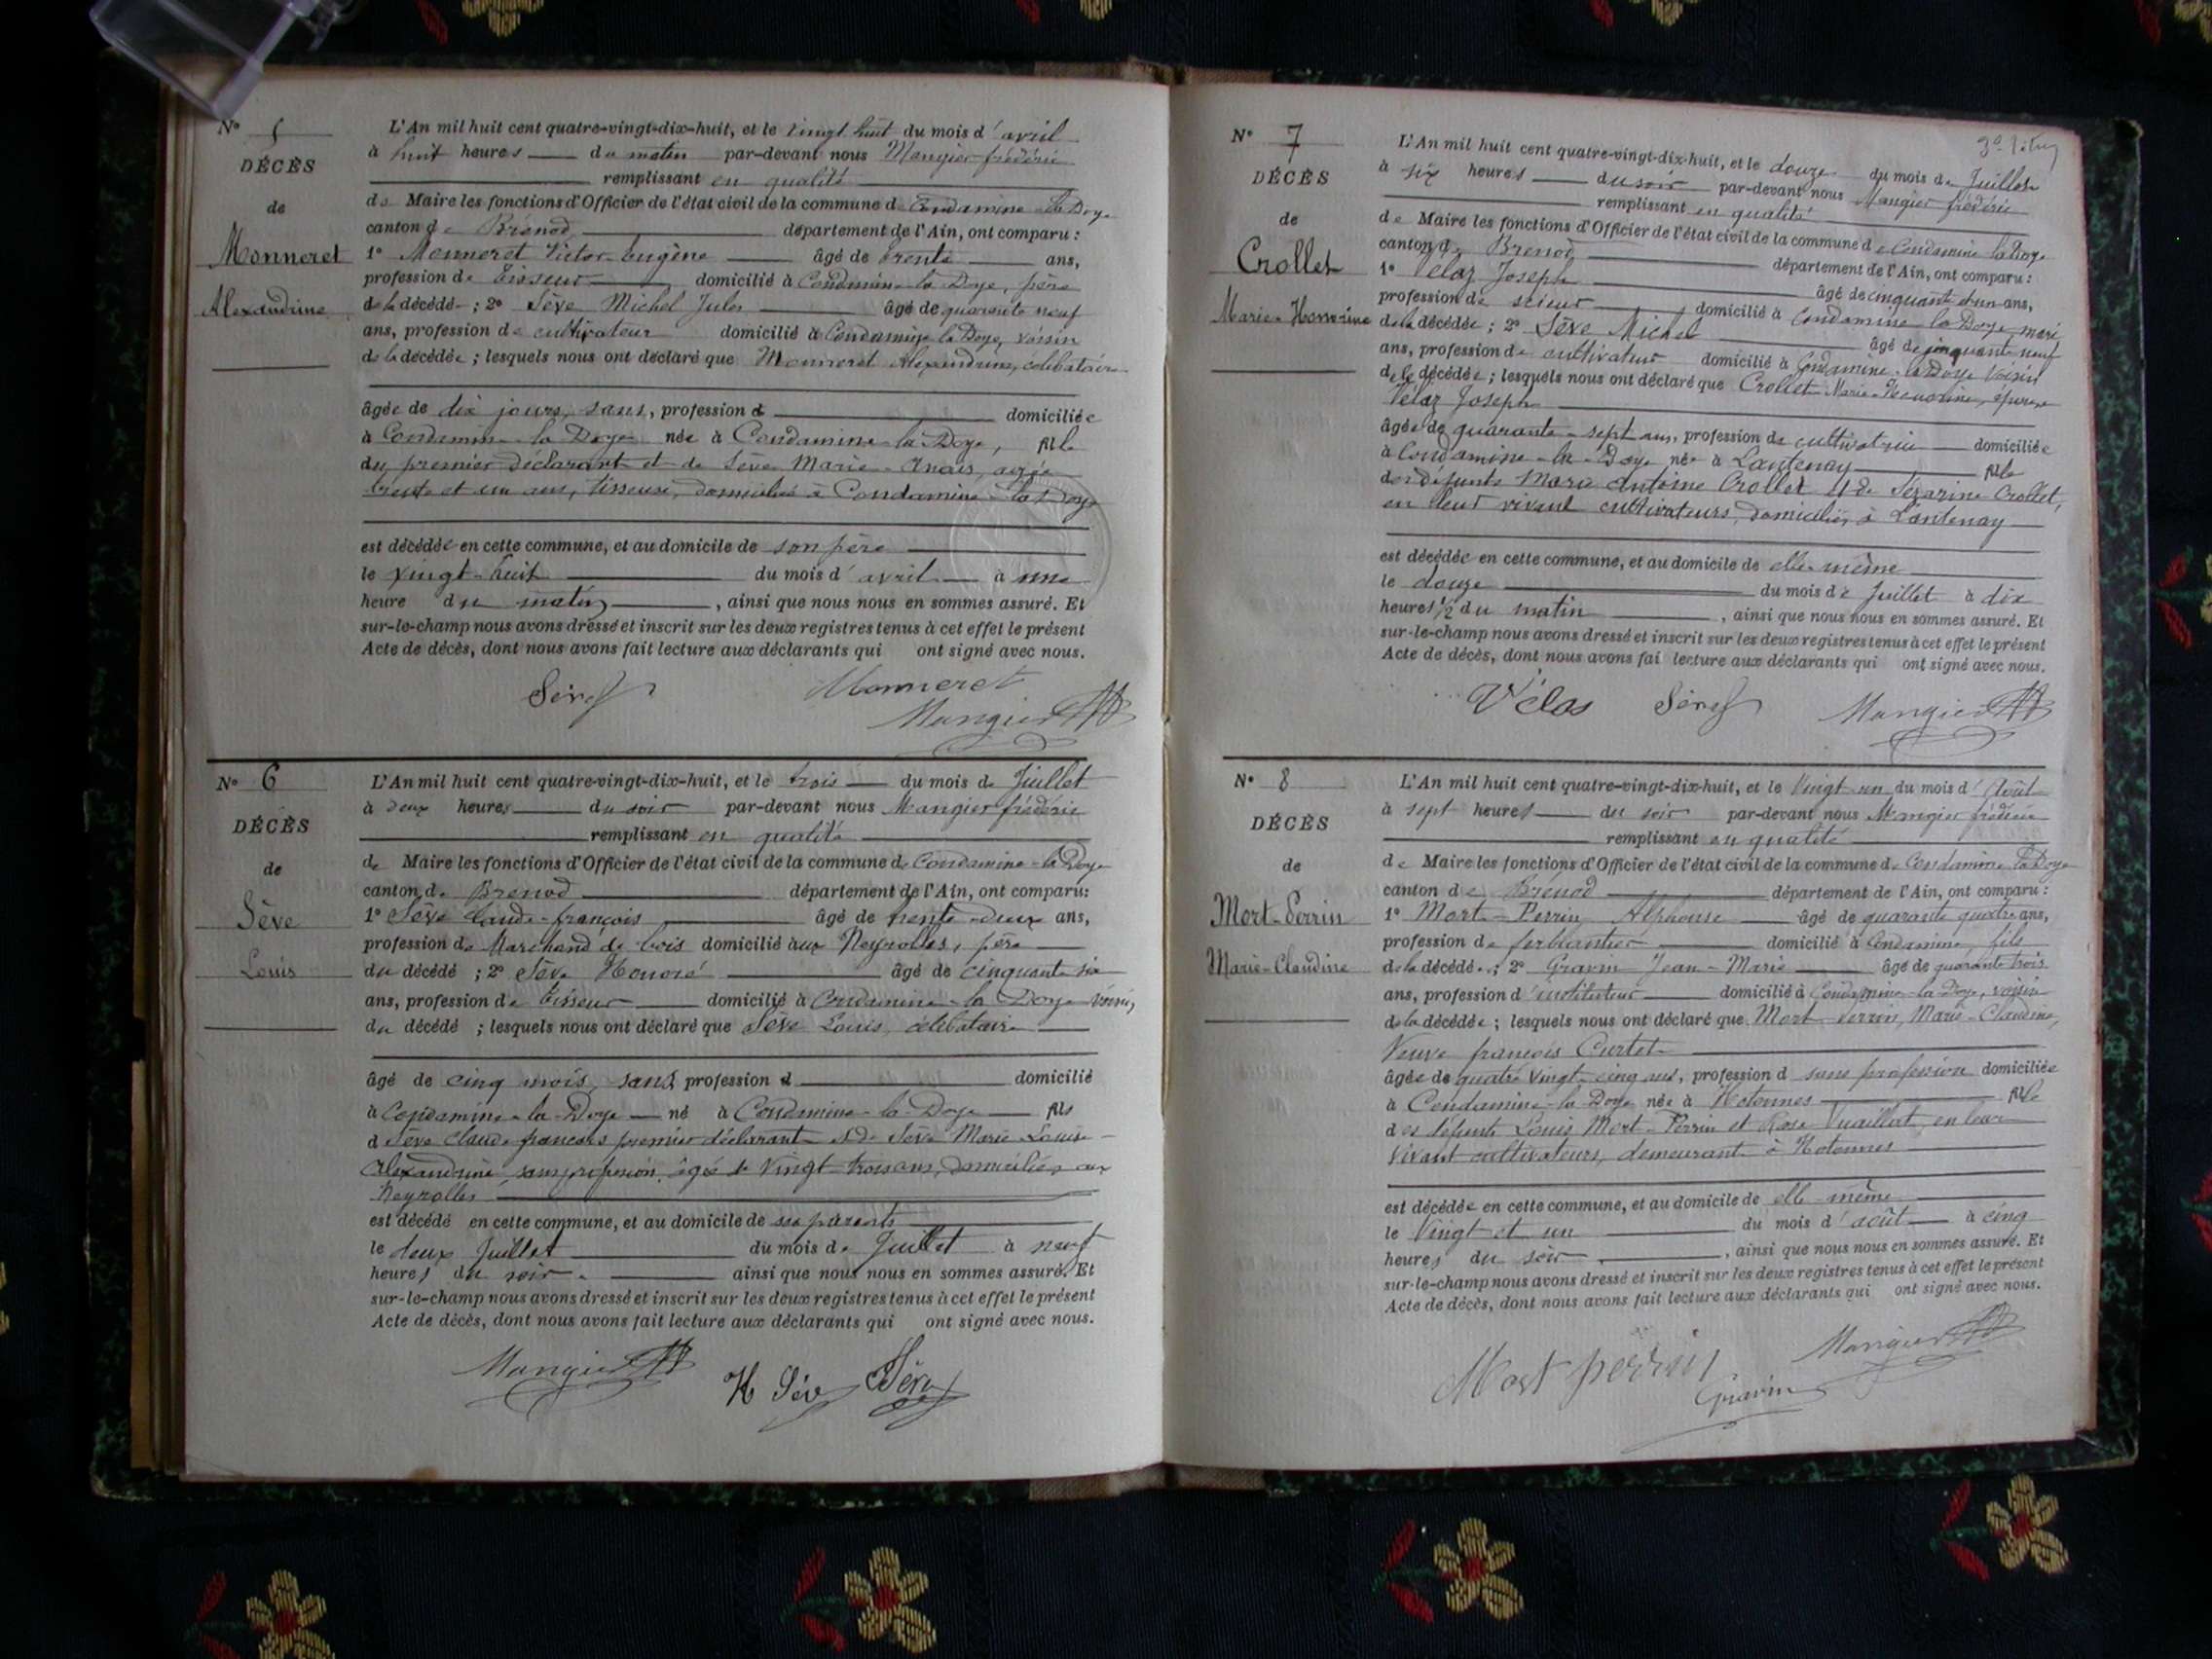 N° 5
DÉCÈS
de
Monneret
Alexandrine
L'An mil huit cent quatre-vingt-dix-huit, et le vingt huit du mois d'avril
à huit heures du matin par-devant nous Mangier frédéric
remplissant en qualité
de Maire les fonctions d'Officier de l'état civil de la commune de Condamine la Doye
canton de Brénod, département de l'Ain, ont comparu :
1° Monneret Victor Eugène âgé de trente ans,
profession de tisseur domicilié à Condamine la Doye, père
de la décédée ; 2° Sève Michel Jules âgé de quarante neuf
ans, profession de cultivateur domicilié à Condamine la Doye, voisin
de la décédée ; lesquels nous ont déclaré que Monneret Alexandrine, célibataire
âgée de dix jours, sans, profession d domiciliée
à Condamine la Doye née à Condamine-la-Doye, fille
du premier déclarant et de Sève Marie-Anaïs, agée
trente et un ans, tisseuse, domiciliée à Condamine-la-Doye
est décédée en cette commune, et au domicile de son père
le vingt-huit du mois d'avril à une
heure du matin, ainsi que nous nous en sommes assuré. Et
sur-le-champ nous avons dressé et inscrit sur les deux registres tenus à cet effet le présent
Acte de décès, dont nous avons fait lecture aux déclarants qui ont signé avec nous.
Sève Monneret
Mangier
N° 6
DÉCÈS
de
Sève
Louis
L'An mil huit cent quatre-vingt-dix-huit, et le trois du mois de Juillet
à deux heures du soir par-devant nous Mangier frédéric
remplissant en qualité
de Maire les fonctions d'Officier de l'état civil de la commune de Condamine-la-Doye
canton de Brénod département de l'Ain, ont comparu :
1° Sève Claude-françois âgé de trente-deux ans,
profession de Marchand de bois domicilié aux Neyrolles, père
du décédé ; 2° Sève Honoré âgé de cinquante six
ans, profession de tisseur domicilié à Condamine-la Doye voisin,
du décédé ; lesquels nous ont déclaré que Sève Louis, célibataire
âgé de cinq mois, sans profession d domicilié
à Condamine-la-Doye né à Condamine-la-Doye fils
d Sève Claude françois premier déclarant et de Sève Marie Louise-
Alexandrine, sans profession, âgée de vingt-trois ans, domiciliés aux
Neyrolles
est décédé en cette commune, et au domicile de ses parents
le deux Juillet du mois de Juillet à neuf
heures du soir. ainsi que nous nous en sommes assuré. Et
sur-le-champ nous avons dressé et inscrit sur les deux registres tenus à cet effet le présent
Acte de décès, dont nous avons fait lecture aux déclarants qui ont signé avec nous.
Mangier H Sève Sève
N° 7
DÉCÈS
de
Crollet
Marie-Honorine
L'An mil huit cent quatre-vingt-dix-huit, et le douze du mois de Juillet
à six heures du soir par-devant nous Mangier frédéric
remplissant en qualité
de Maire les fonctions d'Officier de l'état civil de la commune de Condamine la Doye
canton de Brenod département de l'Ain, ont comparu :
1° Vélaz Joseph âgé de cinquante et un ans,
profession de scieur domicilié à Condamine la Doye mari
de la décédée ; 2° Sève Michel âgé de cinquante neuf
ans, profession de cultivateur domicilié à Condamine-la Doye voisin
de la décédée ; lesquels nous ont déclaré que Crollet Marie-Honorine, épouse
Vélaz Joseph
âgée de quarante-sept ans, profession de cultivatrice domiciliée
à Condamine-la-Doye née à Lantenay fille
des défunts Marie Antoine Crollet et de Sézarine Crollet,
en leur vivant cultivateurs, domiciliés à Lantenay
est décédée en cette commune, et au domicile de elle-même
le douze du mois de Juillet à dix
heures ½ du matin, ainsi que nous nous en sommes assuré. Et
sur-le-champ nous avons dressé et inscrit sur les deux registres tenus à cet effet le présent
Acte de décès, dont nous avons fai lecture aux déclarants qui ont signé avec nous.
Vélas Sève Mangier
N° 8
DÉCÈS
de
Mort-Perrin
Marie-Claudine
L'An mil huit cent quatre-vingt-dix-huit, et le vingt un du mois d'Août
à sept heures du soir par-devant nous Mangier frédéric
remplissant en qualité
de Maire les fonctions d'Officier de l'état civil de la commune de Condamine la Doye
canton de Brénod département de l'Ain, ont comparu :
1° Mort-Perrin Alphonse âgé de quarante quatre ans,
profession de ferblantier domicilié à Condamine, fils
de la décédée ; 2° Gravin Jean-Marie âgé de quarante trois
ans, profession d'instituteur domicilié à Condamine-la-Doye, voisin
de la décédée ; lesquels nous ont déclaré que Mort Perrin, Marie-Claudine,
Veuve françois Curtet
âgée de quatre vingt-cinq ans, profession d sans profession domiciliée
à Condamine-la-Doye née à Hotonnes fille
des défunts Louis Mort-Perrin et Rose Vuaillat, en leur
vivant cultivateurs, demeurant à Hotonnes
est décédée en cette commune, et au domicile de elle-même
le Vingt et un du mois d'août à cinq
heures du soir, ainsi que nous nous en sommes assuré. Et
sur-le-champ nous avons dressé et inscrit sur les deux registres tenus à cet effet le présent
Acte de décès, dont nous avons fait lecture aux déclarants qui ont signé avec nous.
Mort perrin Mangier
Gravin